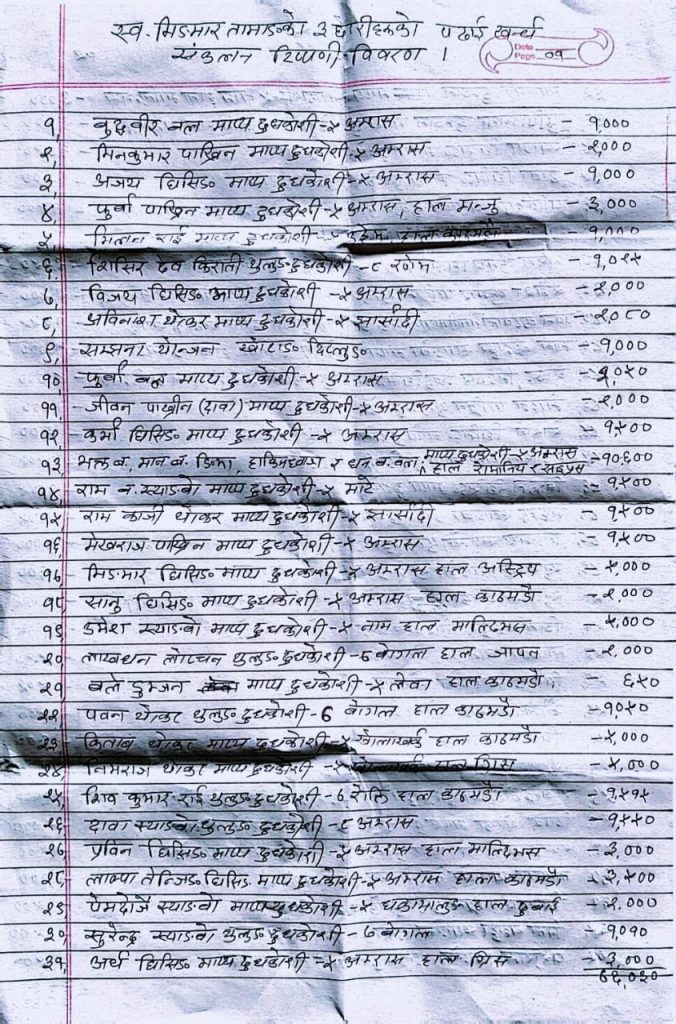 स्व. मिङमार तामाङको ३ छोरीहरुको पढाई खर्च
संकलन टिप्पणी विवरण ।
Date
Page 01
१, बुद्धवीर वल माप्य दुधकोशी-५ अम्रास - १,०००
२, मिनकुमार पाख्रिन माप्य दुधकोशी-५ अम्रास - २,०००
३, अजय घिसिङ माप्य दुधकोशी-५ अम्रास - १,०००
४, फुर्वा पाख्रिन माप्य दुधकोशी-५ अम्रास, हाल मन्जु - ३,०००
५, मिलन राई माप्य दुधकोशी हाल काठमडौ - १,०००
६, शिसिर देव किराती थुलुङ दुधकोशी -८ - १,०२५
७, विजय घिसिङ माप्य दुधकोशी -५ अम्रास - २,०००
८, अविनाश थोकर माप्य दुधकोशी-५ झार्सादी - २,०८०
९, सम्झना योन्जन खोटाङ दिप्लुङ - १,०००
१०, फुर्वा वल माप्य दुधकोशी-५ अम्रास
११, जीवन पाख्रीन (दावा) माप्य दुधकोशी-५ अम्रास - २,०००
१२, कर्मा घिसिङ माप्य दुधकोशी -५ अम्रास - १,५००
१३, भक्त ब., मान ब. र धन ब. वल, माप्य दुधकोशी-५ अम्रास हाल - १०,६००
१४, राम ब. स्याङबो माप्य दुधकोशी-५ माटे - १,५००
१५, राम काजी थोकर माप्य दुधकोशी-५ झार्सादी - १,५००
१६, मेखराज पाख्रिन माप्य दुधकोशी-५ अम्रास - १,५००
१७, मिङमार घिसिङ माप्य दुधकोशी-५ अम्रास हाल अस्ट्रिय - ५,०००
१८, सानु घिसिङ माप्य दुधकोशी -५ अम्रास हाल काठमडौ - २,०००
१९, उमेश स्याङबो माप्य दुधकोशी -५ नाम हाल माल्दिभस - ५,०००
२०, लाखधन लोप्चन थुलुङ दुधकोशी -६ बोगल हाल जापन - २,०००
२१, बले डुम्जन माप्य दुधकोशी -५ लेवा हाल काठमडौ - ६५०
२२, पवन थोकर थुलुङ दुधकोशी -6 बोगल हाल काठमडौ - १,०५०
२३, किताब थोकर माप्य दुधकोशी -५ हाल काठमडौ - ५,०००
२४, निमराज थोकर माप्य दुधकोशी -५ हाल ग्रिस - ५,०००
२५, शिव कुमार राई थुलुङ दुधकोशी -6 हाल काठमडौ - १,५१५
२६, दावा स्याङबो थुलुङ दुधकोशी -८ अम्रास - १,५५०
२७, प्रविन घिसिङ माप्य दुधकोशी -५ अम्रास हाल माल्दिभस - ३,०००
२८, लाक्पा तेन्जिङ घिसिङ माप्य दुधकोशी-५ अम्रास हाल काठमडौ - ३,५००
२९, पेमदोर्जे स्याङबो माप्य दुधकोशी -५ हाल दुबाई - २,०००
३०, सुरेन्द्र स्याङबो थुलुङ दुधकोशी - बोगल - १,०१०
३१, अर्थ घिसिङ माप्य दुधकोशी -५ अम्रास हाल ग्रिस - ३,०००